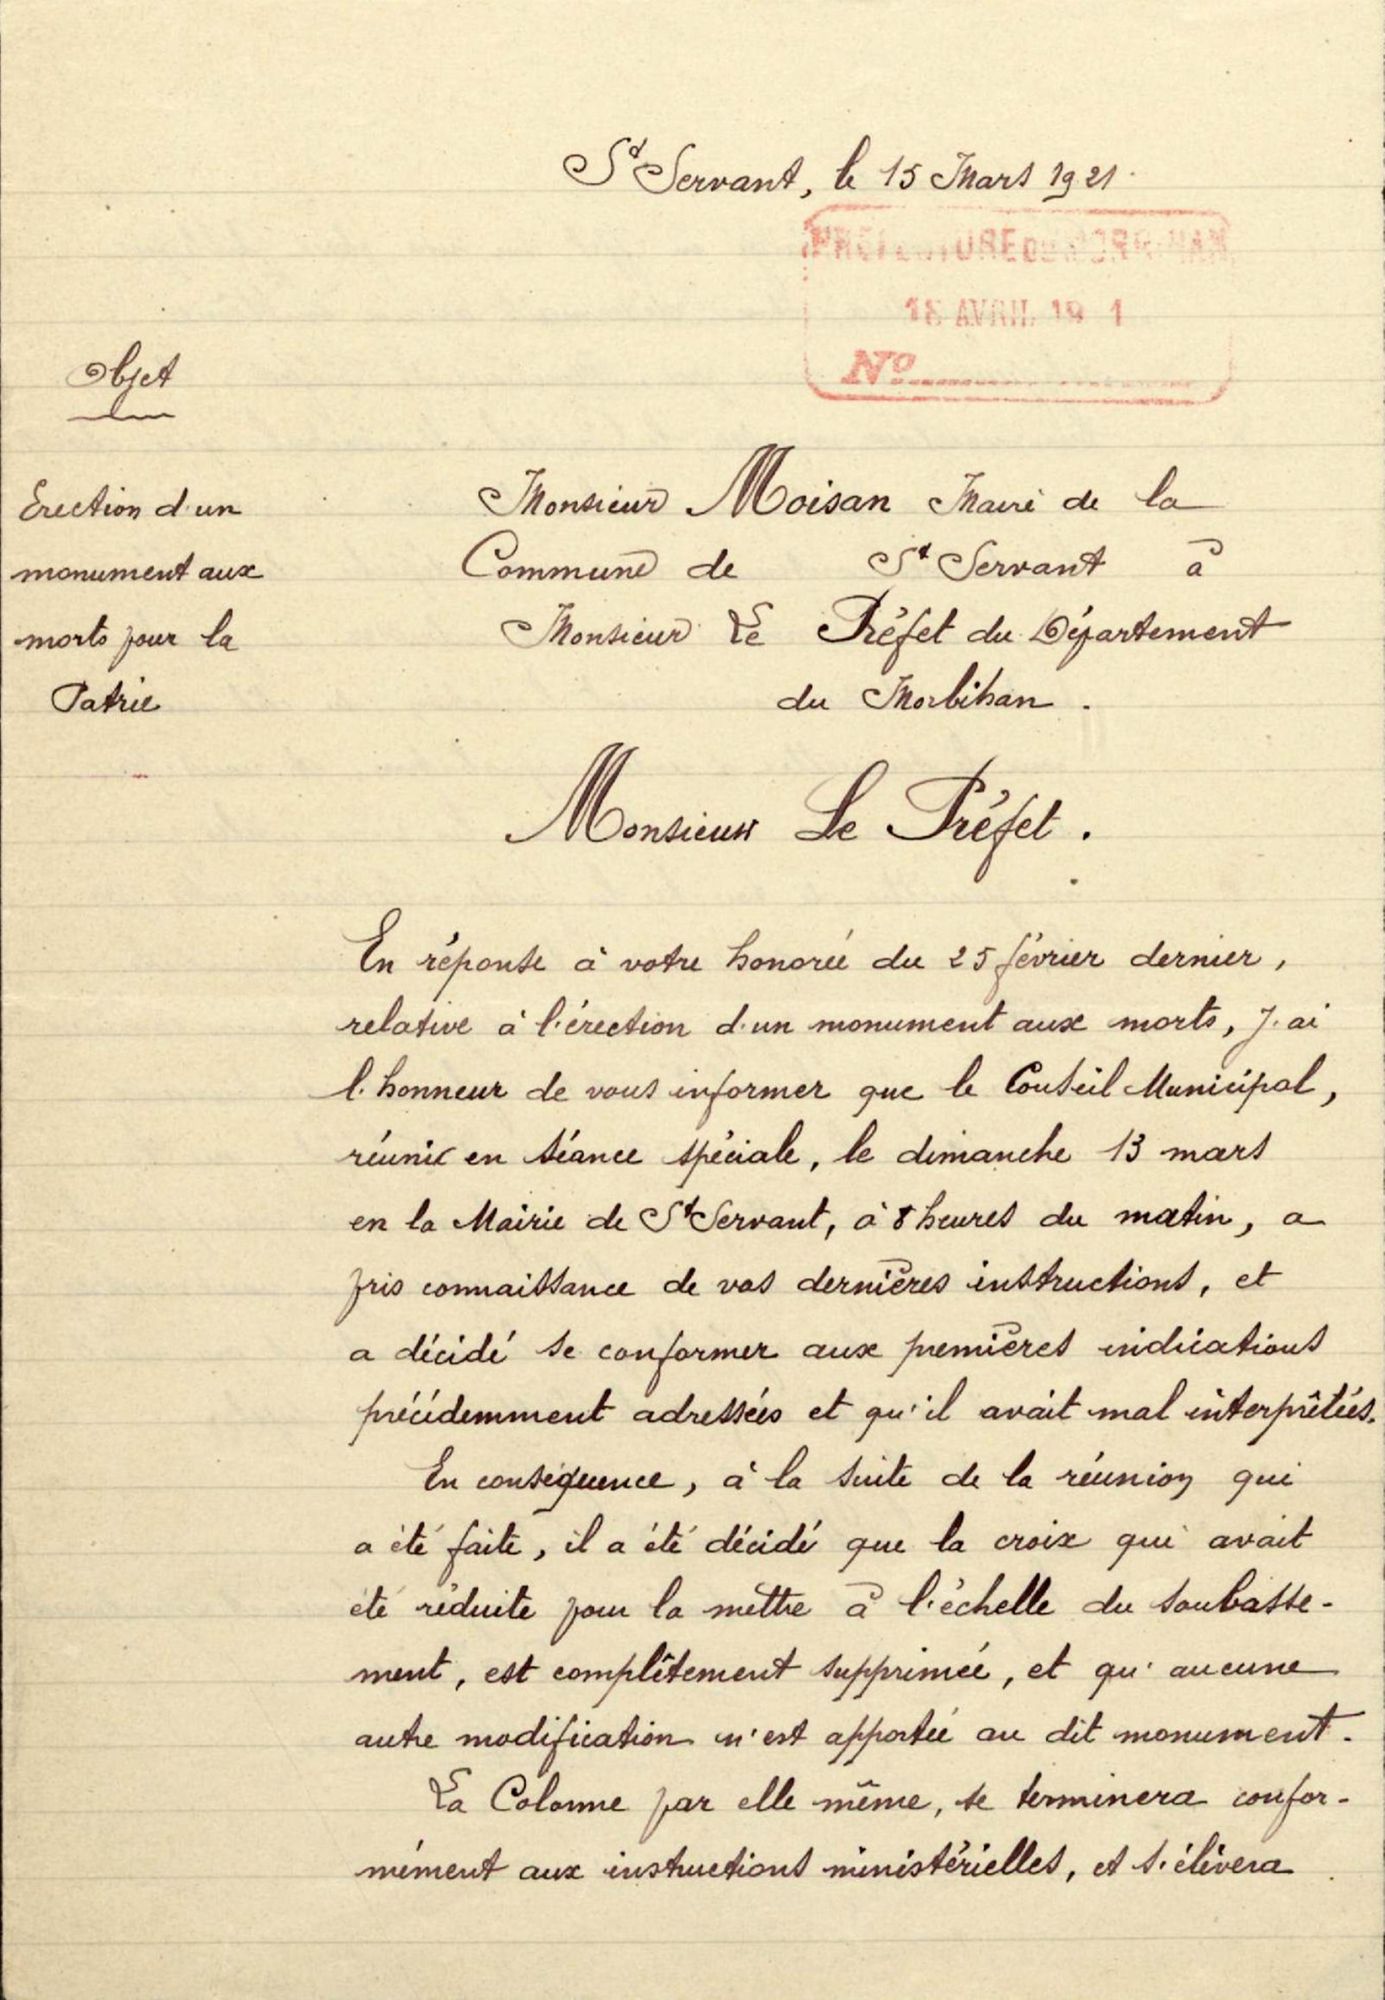 St Servant, le 15 Mars 1921.
PREFECTURE DU MORBIHAN
AVRIL 19 1
No
Objet
Erection d'un
monument aux
morts pour la
Patrie
Monsieur Moisan Maire de la
Commune de St Servant à
Monsieur Le Préfet du Département
du Morbihan.
Monsieur Le Préfet.
En réponse à votre honorée du 25 février dernier,
relative à l'érection d'un monument aux morts, j'ai
l'honneur de vous informer que le Conseil Municipal,
réuni en séance spéciale, le dimanche 13 mars
en la Mairie de St Servant, à 8 heures du matin, a
pris connaissance de vos dernières instructions, et
a décidé se conformer aux premières indications
précédemment adressées et qu'il avait mal interprêtées.
En conséquence, à la suite de la réunion qui
a été faite, il a été décidé que la croix qui avait
été réduite pour la mettre à l'échelle du soubasse-
ment, est complêtement supprimée, et qu'aucune
autre modification n'est apportée au dit monument.
La Colonne par elle même, se terminera confor-
mément aux instructions ministérielles, et s'élèvera